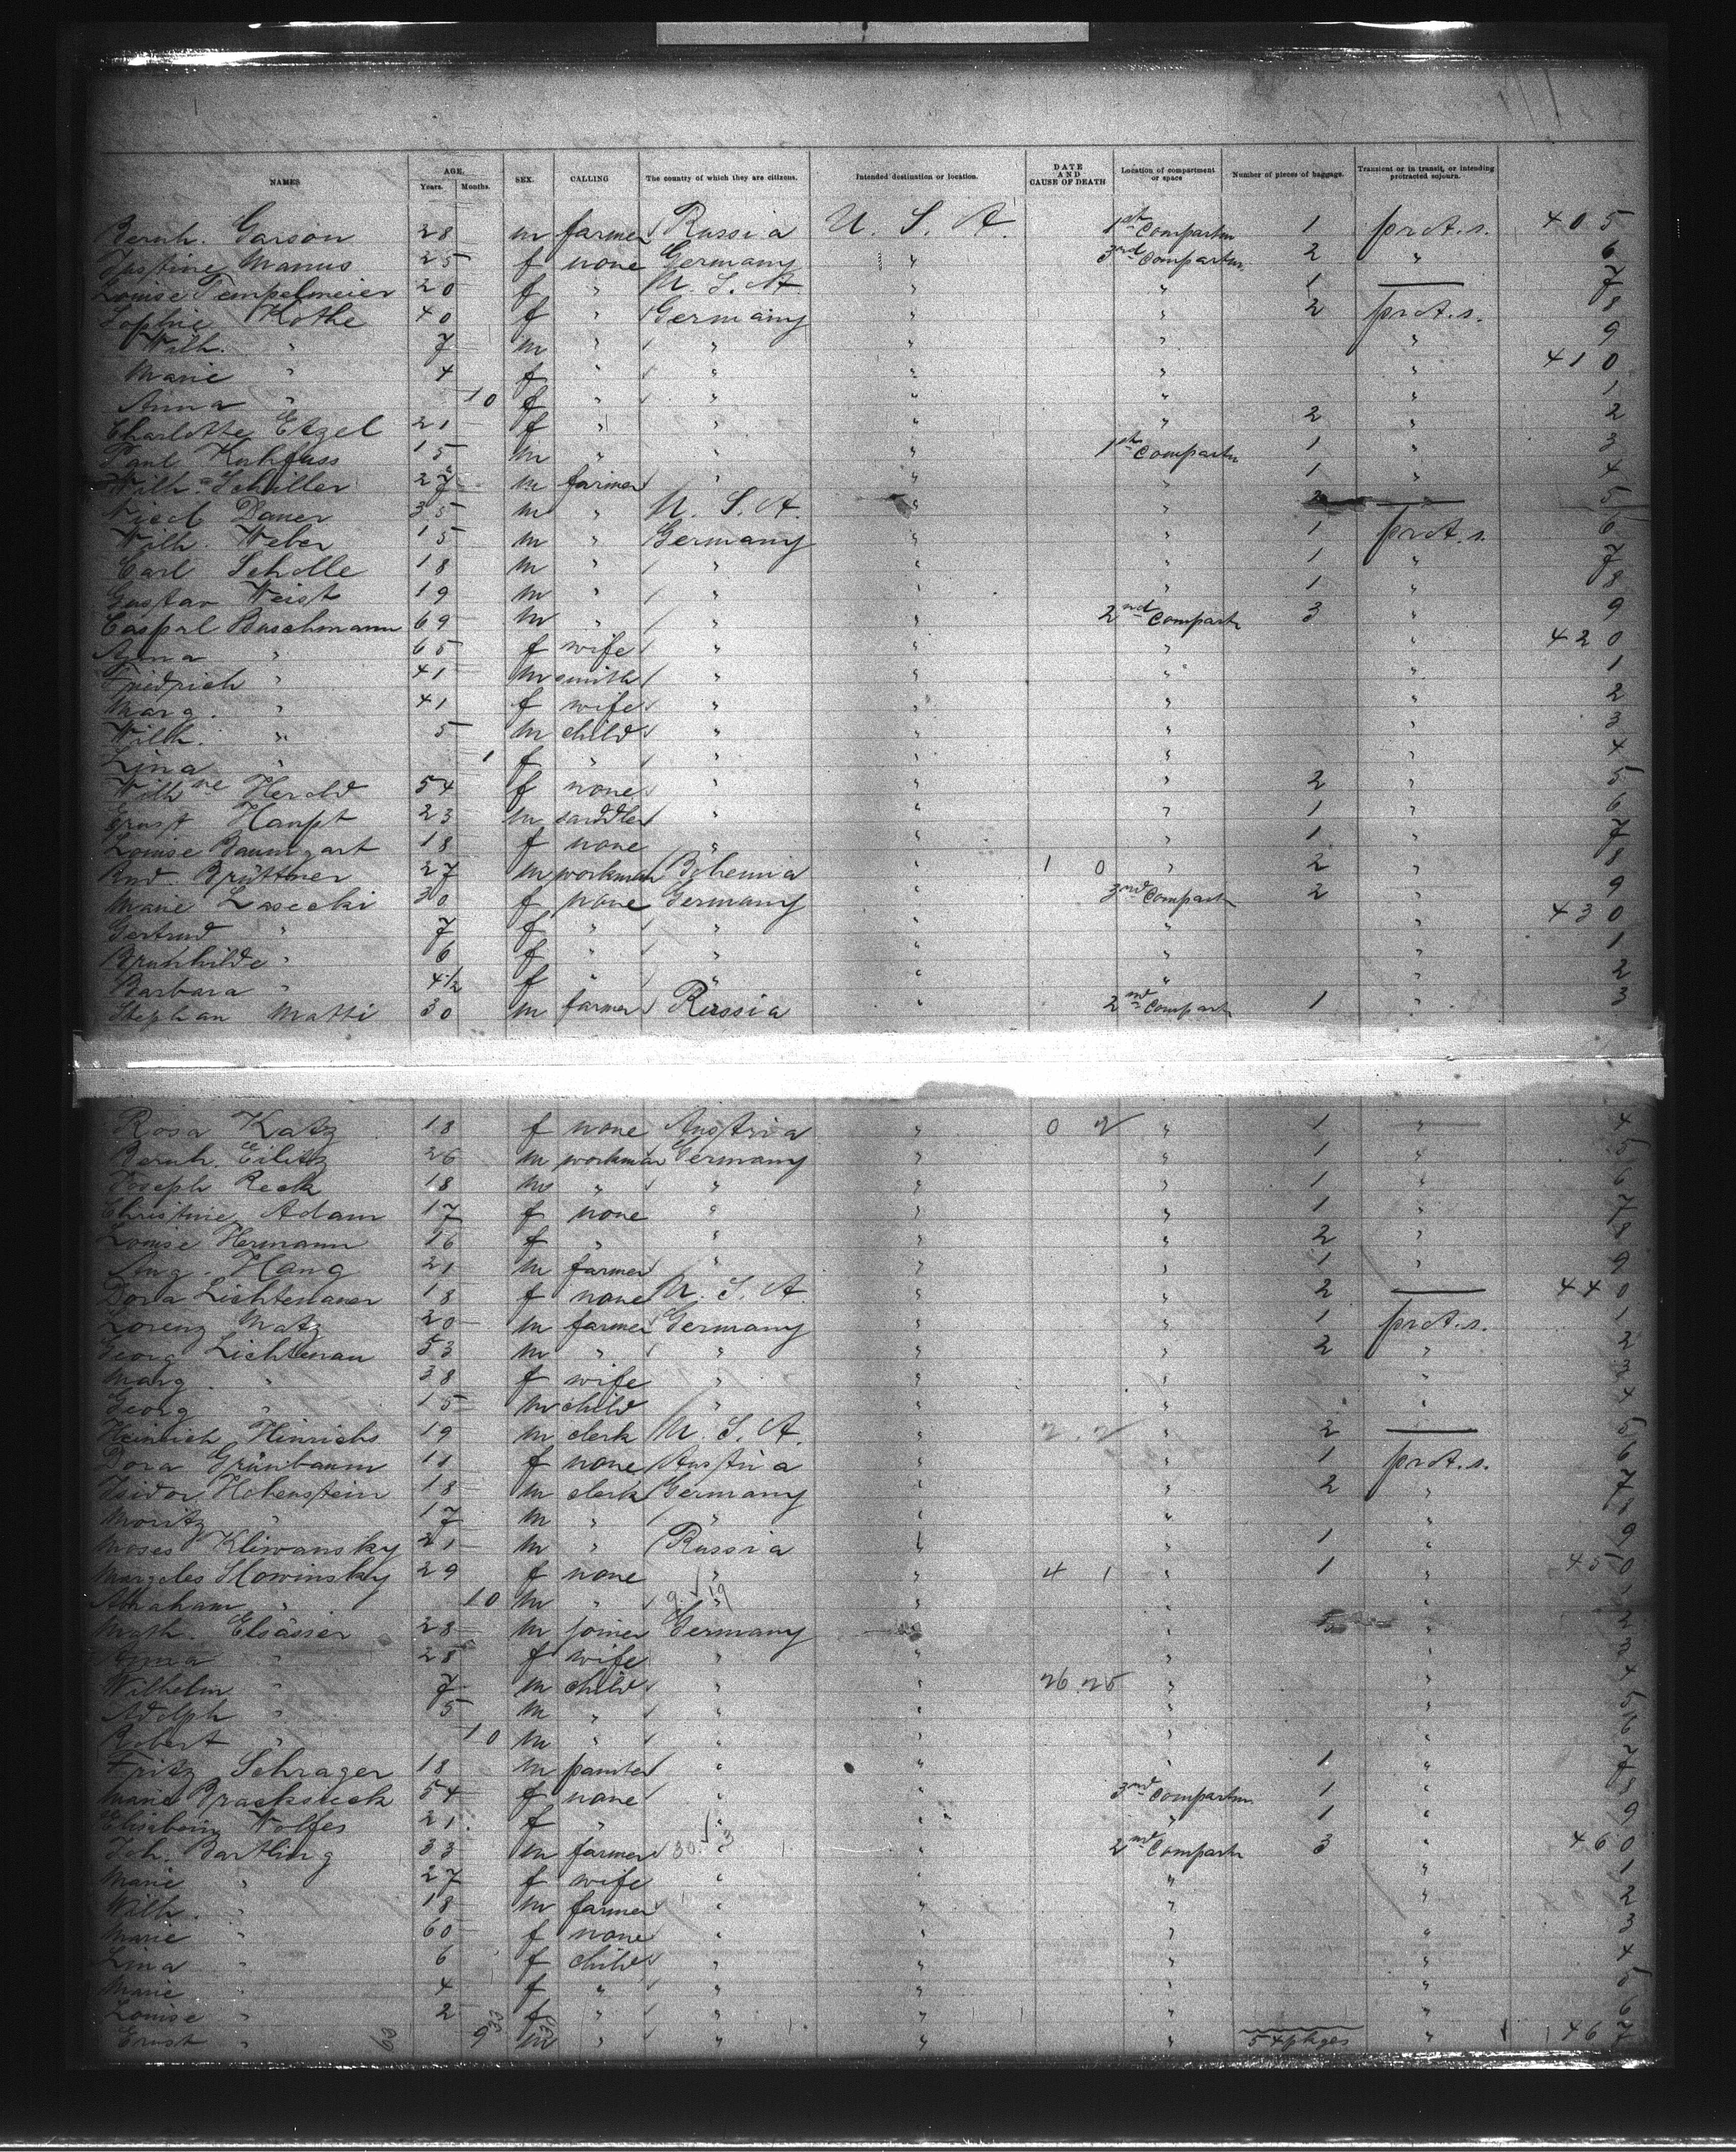 NAMES AGE. Years. Months. SEX. CALLING The country of which they are citizens. Intended destination or location. DATE AND CAUSE OF DEATH Location of compartment or space Number of pieces of baggage. Transient or in transit, or intending protracted sojourn.
Bernh. Garson 28 m farmer Russia U. S. A. 1st Compartm 1 prot. s. 405
Justine Manus 25 f none Germany " 3rd Compartm. 2 " 6
Louise Tempelmeier 20 f " U. S. A. " " 1 — 7
Sophie Kothe 40 f " Germany " " 2 prot. s. 8
Wilh. " 7 m " " " " " 9
Marie " 4 f " " " " " 410
Anna " 10 f " " " " " 1
Charlotte Etzel 21 f " " " " 2 " 2
Paul Kuhfuss 15 m " " " 1st Compartm 1 " 3
Wilh. Schiller 27 m farmer " " " 1 " 4
Dauer 35 m " U. S. A. " " 2 — 5
Wilh. Weber 15 m " Germany " " 1 prot. s. 6
Carl Scholle 18 m " " " " 1 " 7
Gustav Weist 19 m " " " " 1 " 8
Caspal Buschmann 69 m " " " 2nd Compart 3 " 9
Anna " 65 f wife " " " " 420
Friedrich " 41 m smith " " " " 1
Marg. " 41 f wife " " " " 2
Wilh. " 5 m child " " " " 3
Lina " 1 f " " " " " 4
Wilhne Herold 54 f none " " " 2 " 5
Ernst Haupt 23 m saddler " " " 1 " 6
Louise Baumgart 18 f none " " " 1 " 7
Rud. Brüttner 27 m workman Bohemia " 1 0 " 2 " 8
Marie Lasecki 30 f none Germany " 3rd Compart 2 " 9
Gertrud " 7 f " " " " " 430
Brunhilde " 6 f " " " " " 1
Barbara " 4 1/2 f " " " " " 2
Stephan Matti 30 m farmer Russia " 2nd Compart 1 " 3
Rosa Katz 18 f none Austria " 0 2 " 1 " 4
Bernh. Eilitz 26 m workman Germany " " 1 " 5
Joseph Reck 18 m " " " " 1 " 6
Christine Adam 17 f none " " " 1 " 7
Louise Hermann 16 f " " " " 2 " 8
Aug. Hang 21 m farmer " " " 1 " 9
Dora Lichtenauer 18 f none U. S. A. " " 2 — 440
Lorenz Matz 20 m farmer Germany " " 1 prot. s. 1
Georg Lichtenau 53 m " " " " 2 " 2
Marg. " 38 f wife " " " " 3
Georg " 15 m child " " " " 4
Heinrich Hinrichs 19 m clerk U. S. A. " 2 2 " 2 — 5
Dora Grünbaum 18 f none Austria " " 1 prot. s. 6
Isidor Hohenstein 18 m clerk Germany " " 2 " 7
Moritz " 17 m " " " " " 8
Moses Kliwansky 21 m " Russia " " 1 " 9
Margoles Slowinsky 29 f none " " 4 1 " 1 " 450
Abraham " 10 m " " " " " 1
Math. Elsässer 28 m joiner Germany " " 5 " 2
Anna " 28 f wife " " " " 3
Wilhelm " 7 m child " " 26 25 " " 4
Adolph " 5 m " " " " " 5
Robert " 10 m " " " " " 6
Fritz Schrager 18 m painter " " " 1 " 7
Marie Bracksieck 54 f none " " 3rd Compartm 1 " 8
Wolfes 21 f " " " " 1 " 9
Joh. Bartling 33 m farmer " " 2nd Compartm 3 " 460
Marie " 27 f wife " " " " 1
Wilh. " 18 m farmer " " " " 2
Marie " 60 f none " " " " 3
Lina " 6 f child " " " " 4
Marie " 4 f " " " " " 5
Louise " 2 f " " " " " 6
Ernst " 9 m " " " " 54 pkges " 467